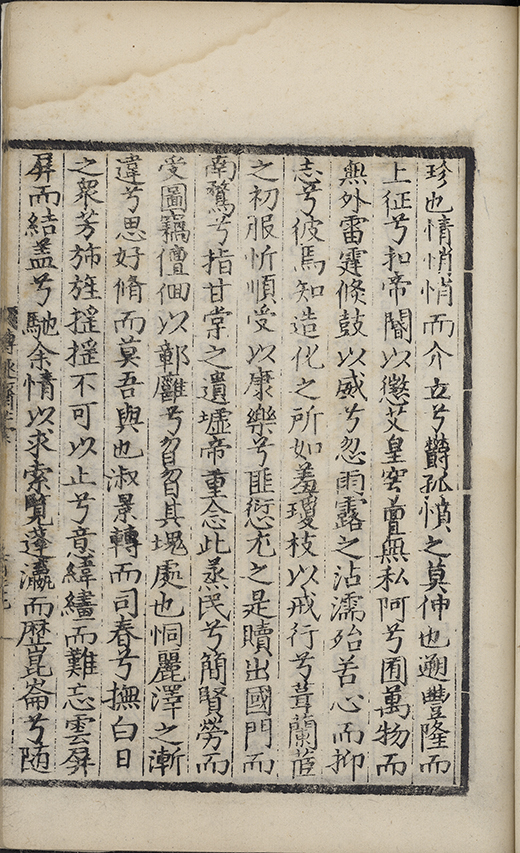 珍也情悄悄而介立兮欝孤憤之莫伸也遡豐隆而
上征兮扣帝閽以懲艾皇穹亶無私阿兮囿萬物而
無外雷霆倏鼓以威兮忽雨露之沾濡殆苦心而抑
志兮彼焉知造化之所如羞瓊枝以戒行兮葺蘭茝
之初服忻順受以康樂兮匪愆尤之是贖出國門而
南騖兮指甘棠之遺墟帝重念此蒸民兮簡賢勞而
受圖竊儃佪以鄣離兮曶曶其塊處也恫麗澤之漸
違兮思好脩而莫吾與也淑景轉而司春兮撫白日
之衆芳斾旌揺揺不可以止兮意緯繣而難忘雲屏
屏而結盖兮馳余情以求索覽蓬瀛而歴崑崙兮随